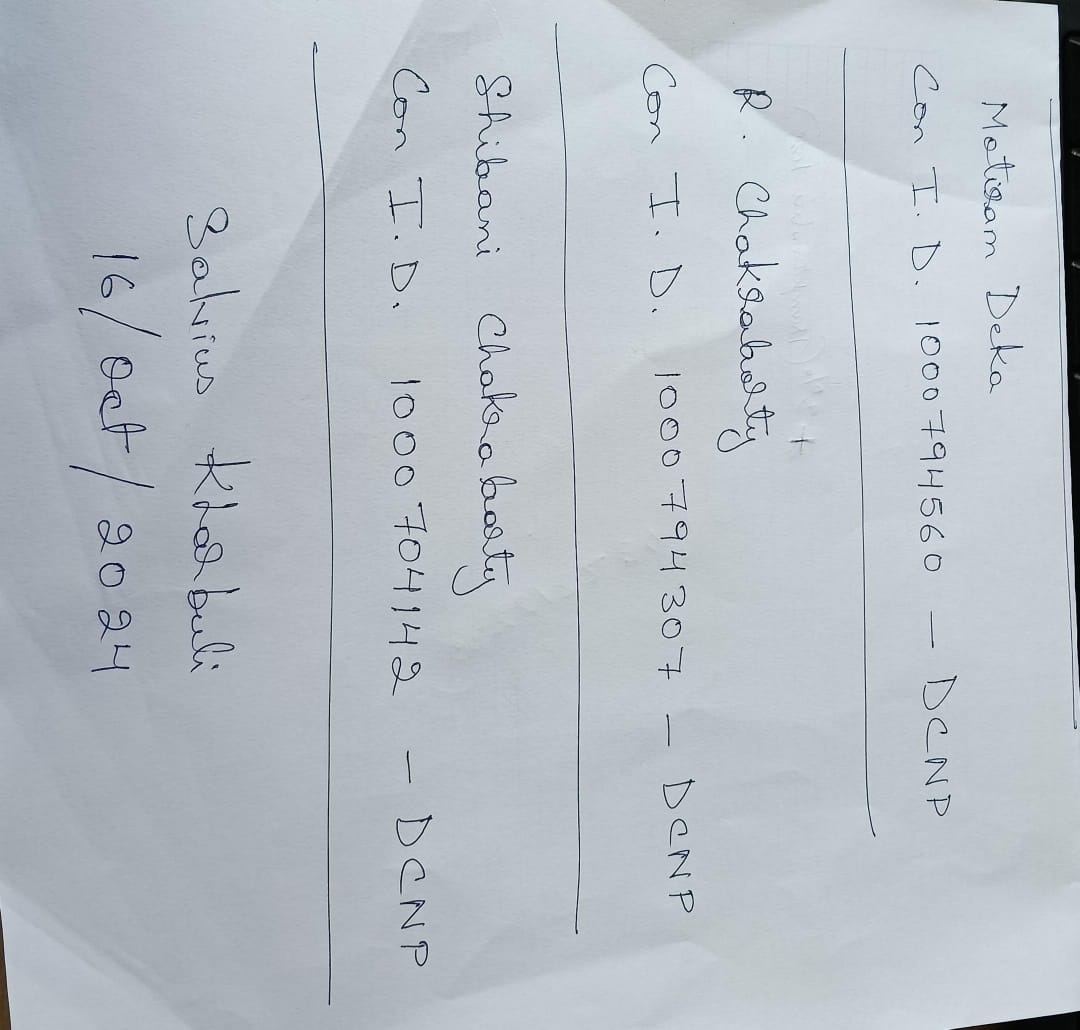 Motiram Deka
Con I.D. 1000794560 — DCNP
R. Chakraborty
Con I.D. 1000794307 — DCNP
Shibaani Chakraborty
Con I.D. 1000704142 — DCNP
Salvius Kharbuli
16/Oct/2024